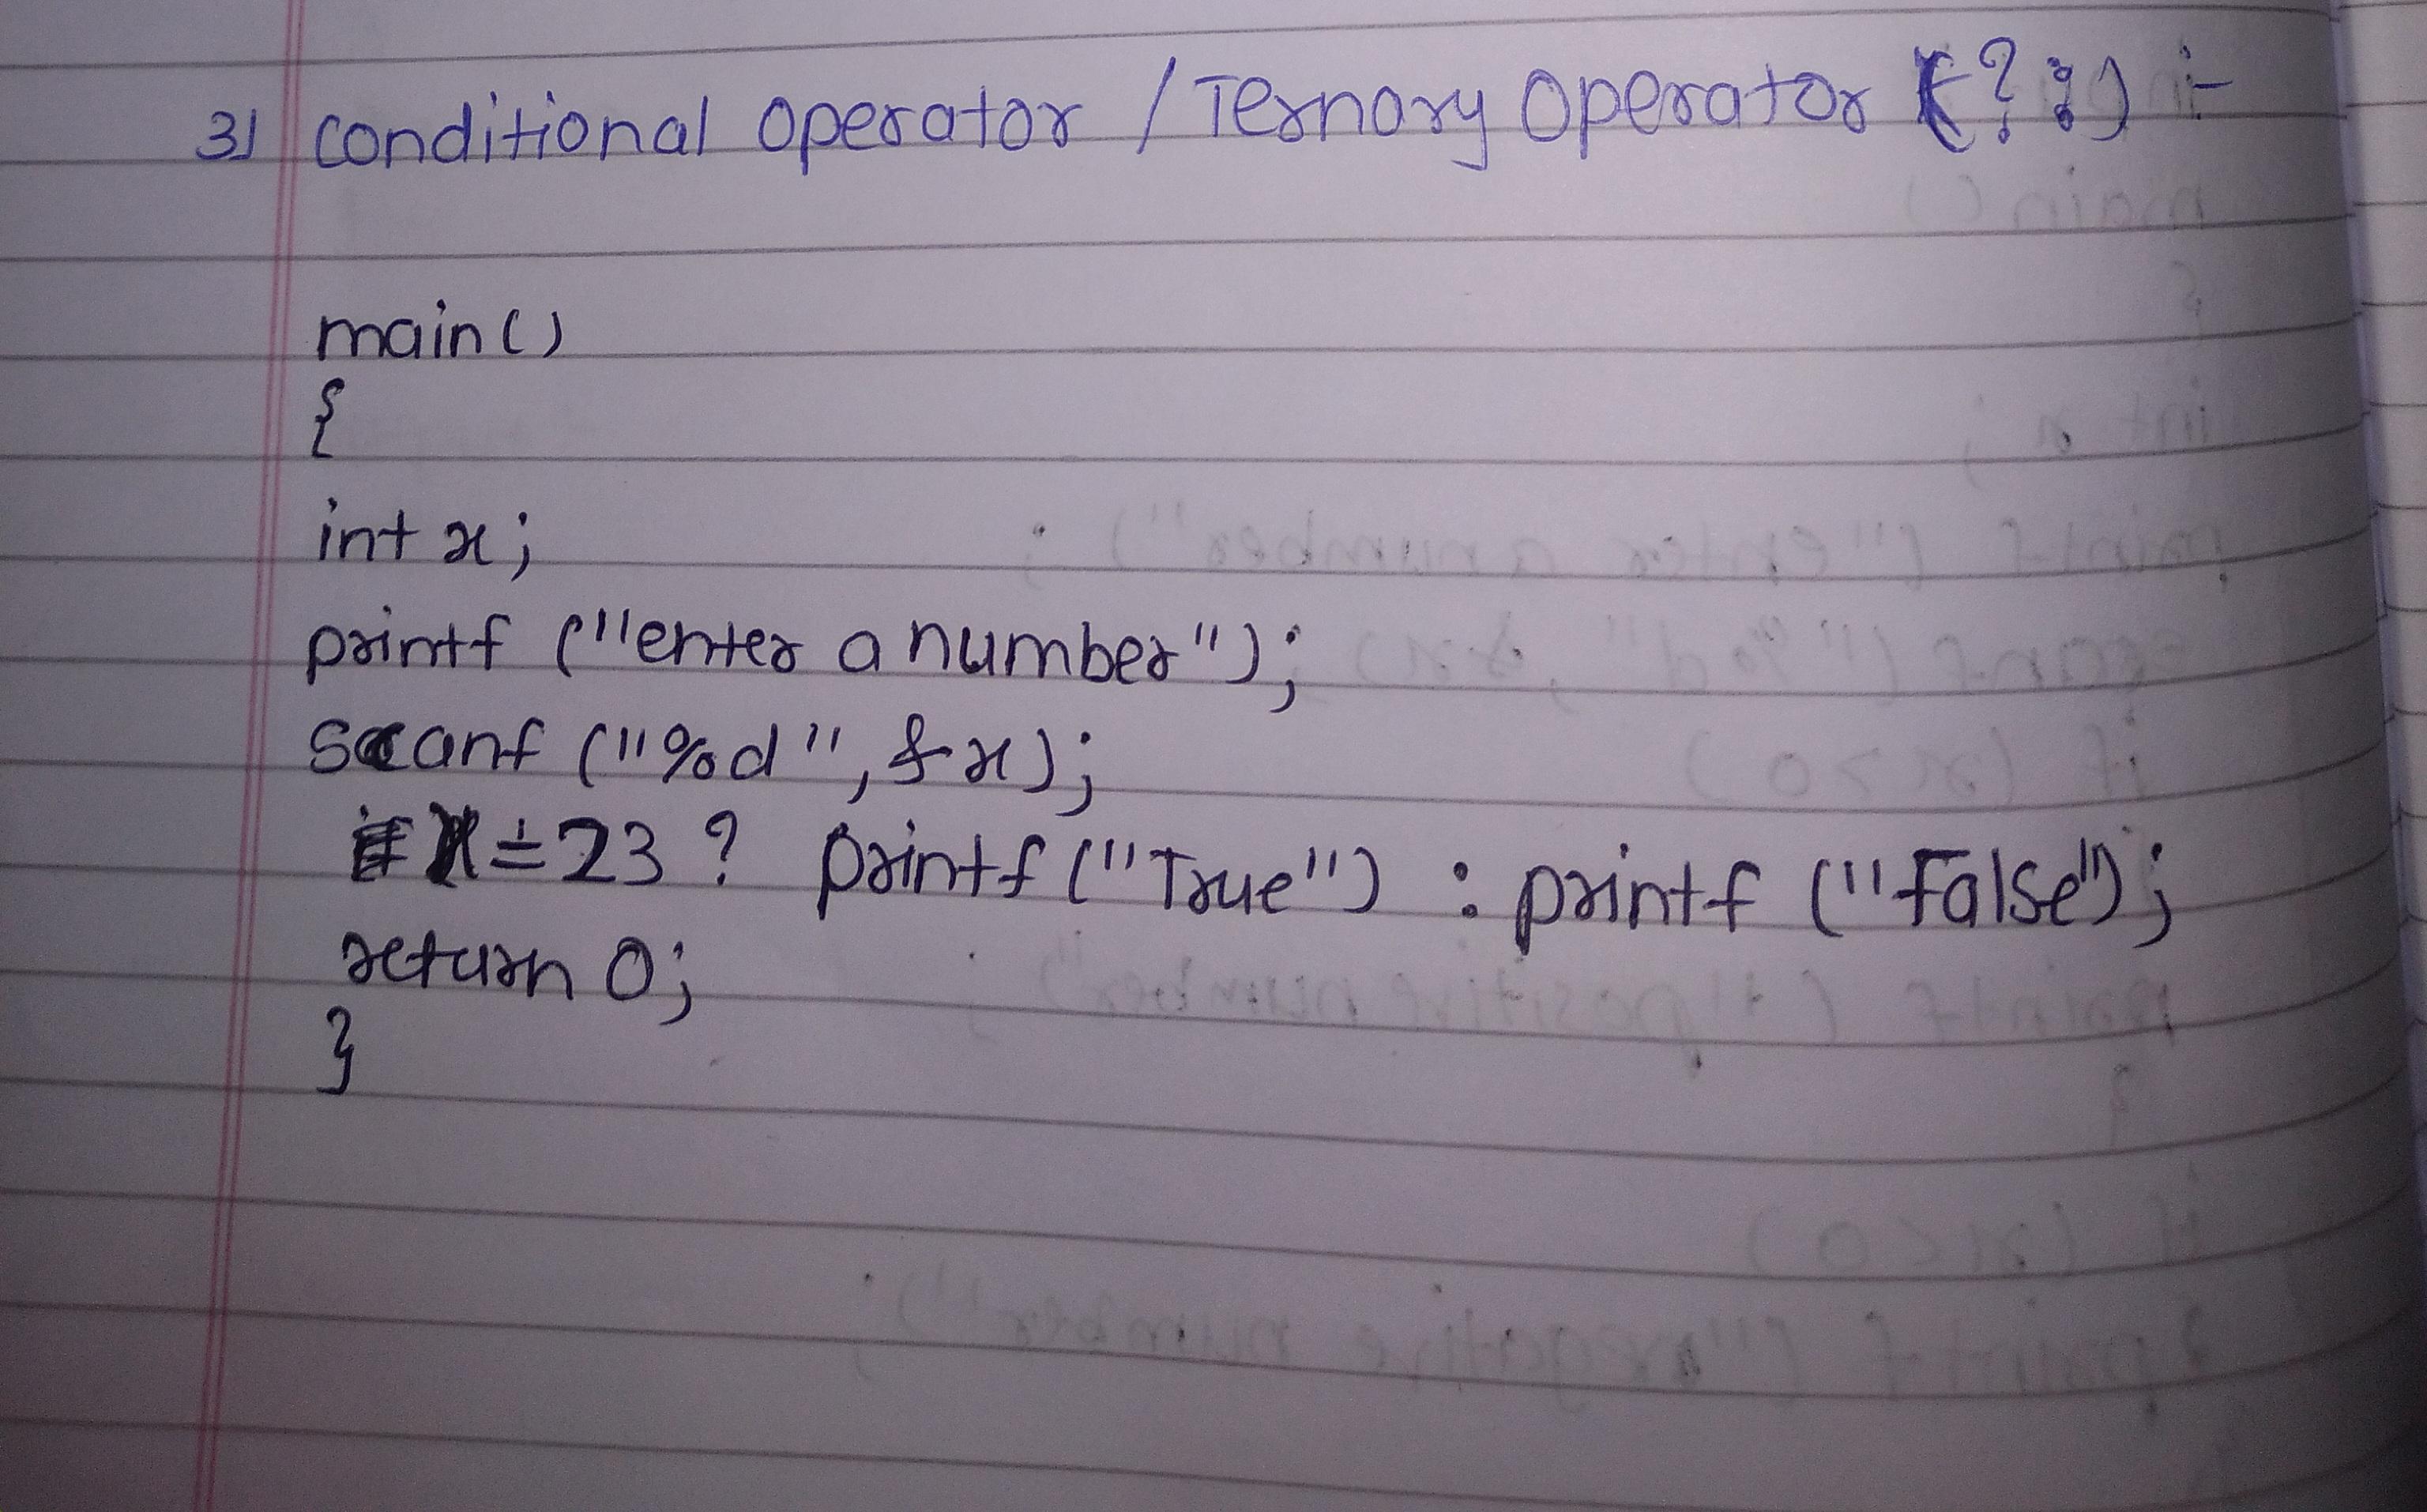 3) conditional operator / Ternary Operator (? :) :-
main()
{
int x;
printf ("enter a number");
scanf ("%d", &x);
x = 23 ? printf ("True") : printf ("False");
return 0;
}